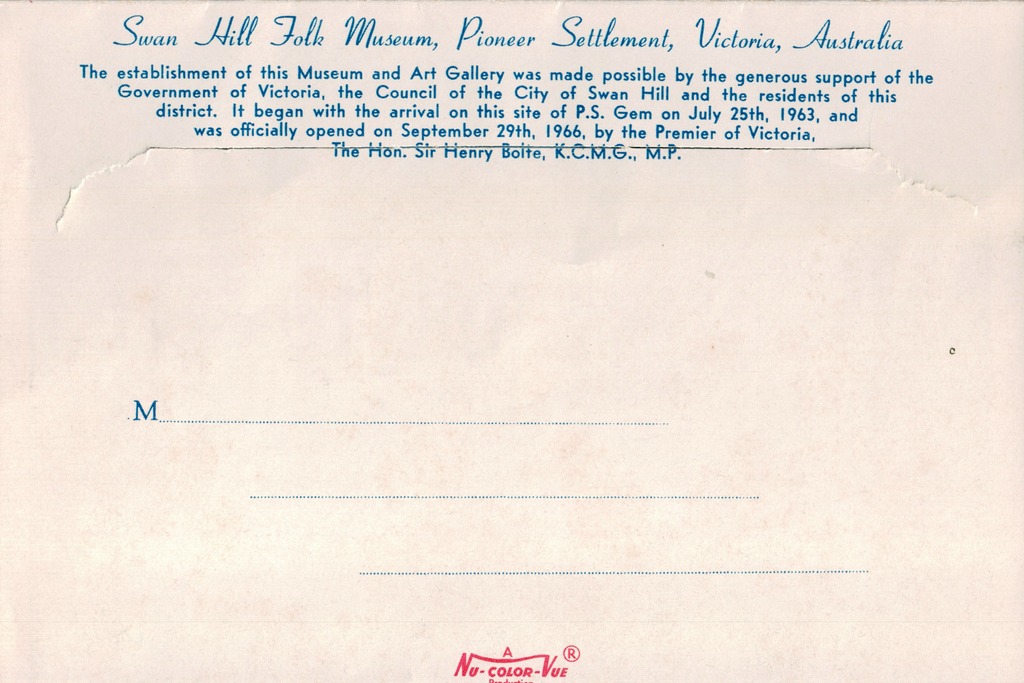 Swan Hill Folk Museum, Pioneer Settlement, Victoria, Australia
The establishment of this Museum and Art Gallery was made possible by the generous support of the
Government of Victoria, the Council of the City of Swan Hill and the residents of this
district. It began with the arrival on this site of P.S. Gem on July 25th, 1963, and
was officially opened on September 29th, 1966, by the Premier of Victoria,
The Hon. Sir Henry Bolte, K.C.M.G., M.P.
M
A
NU-COLOR-VUE ®
Production